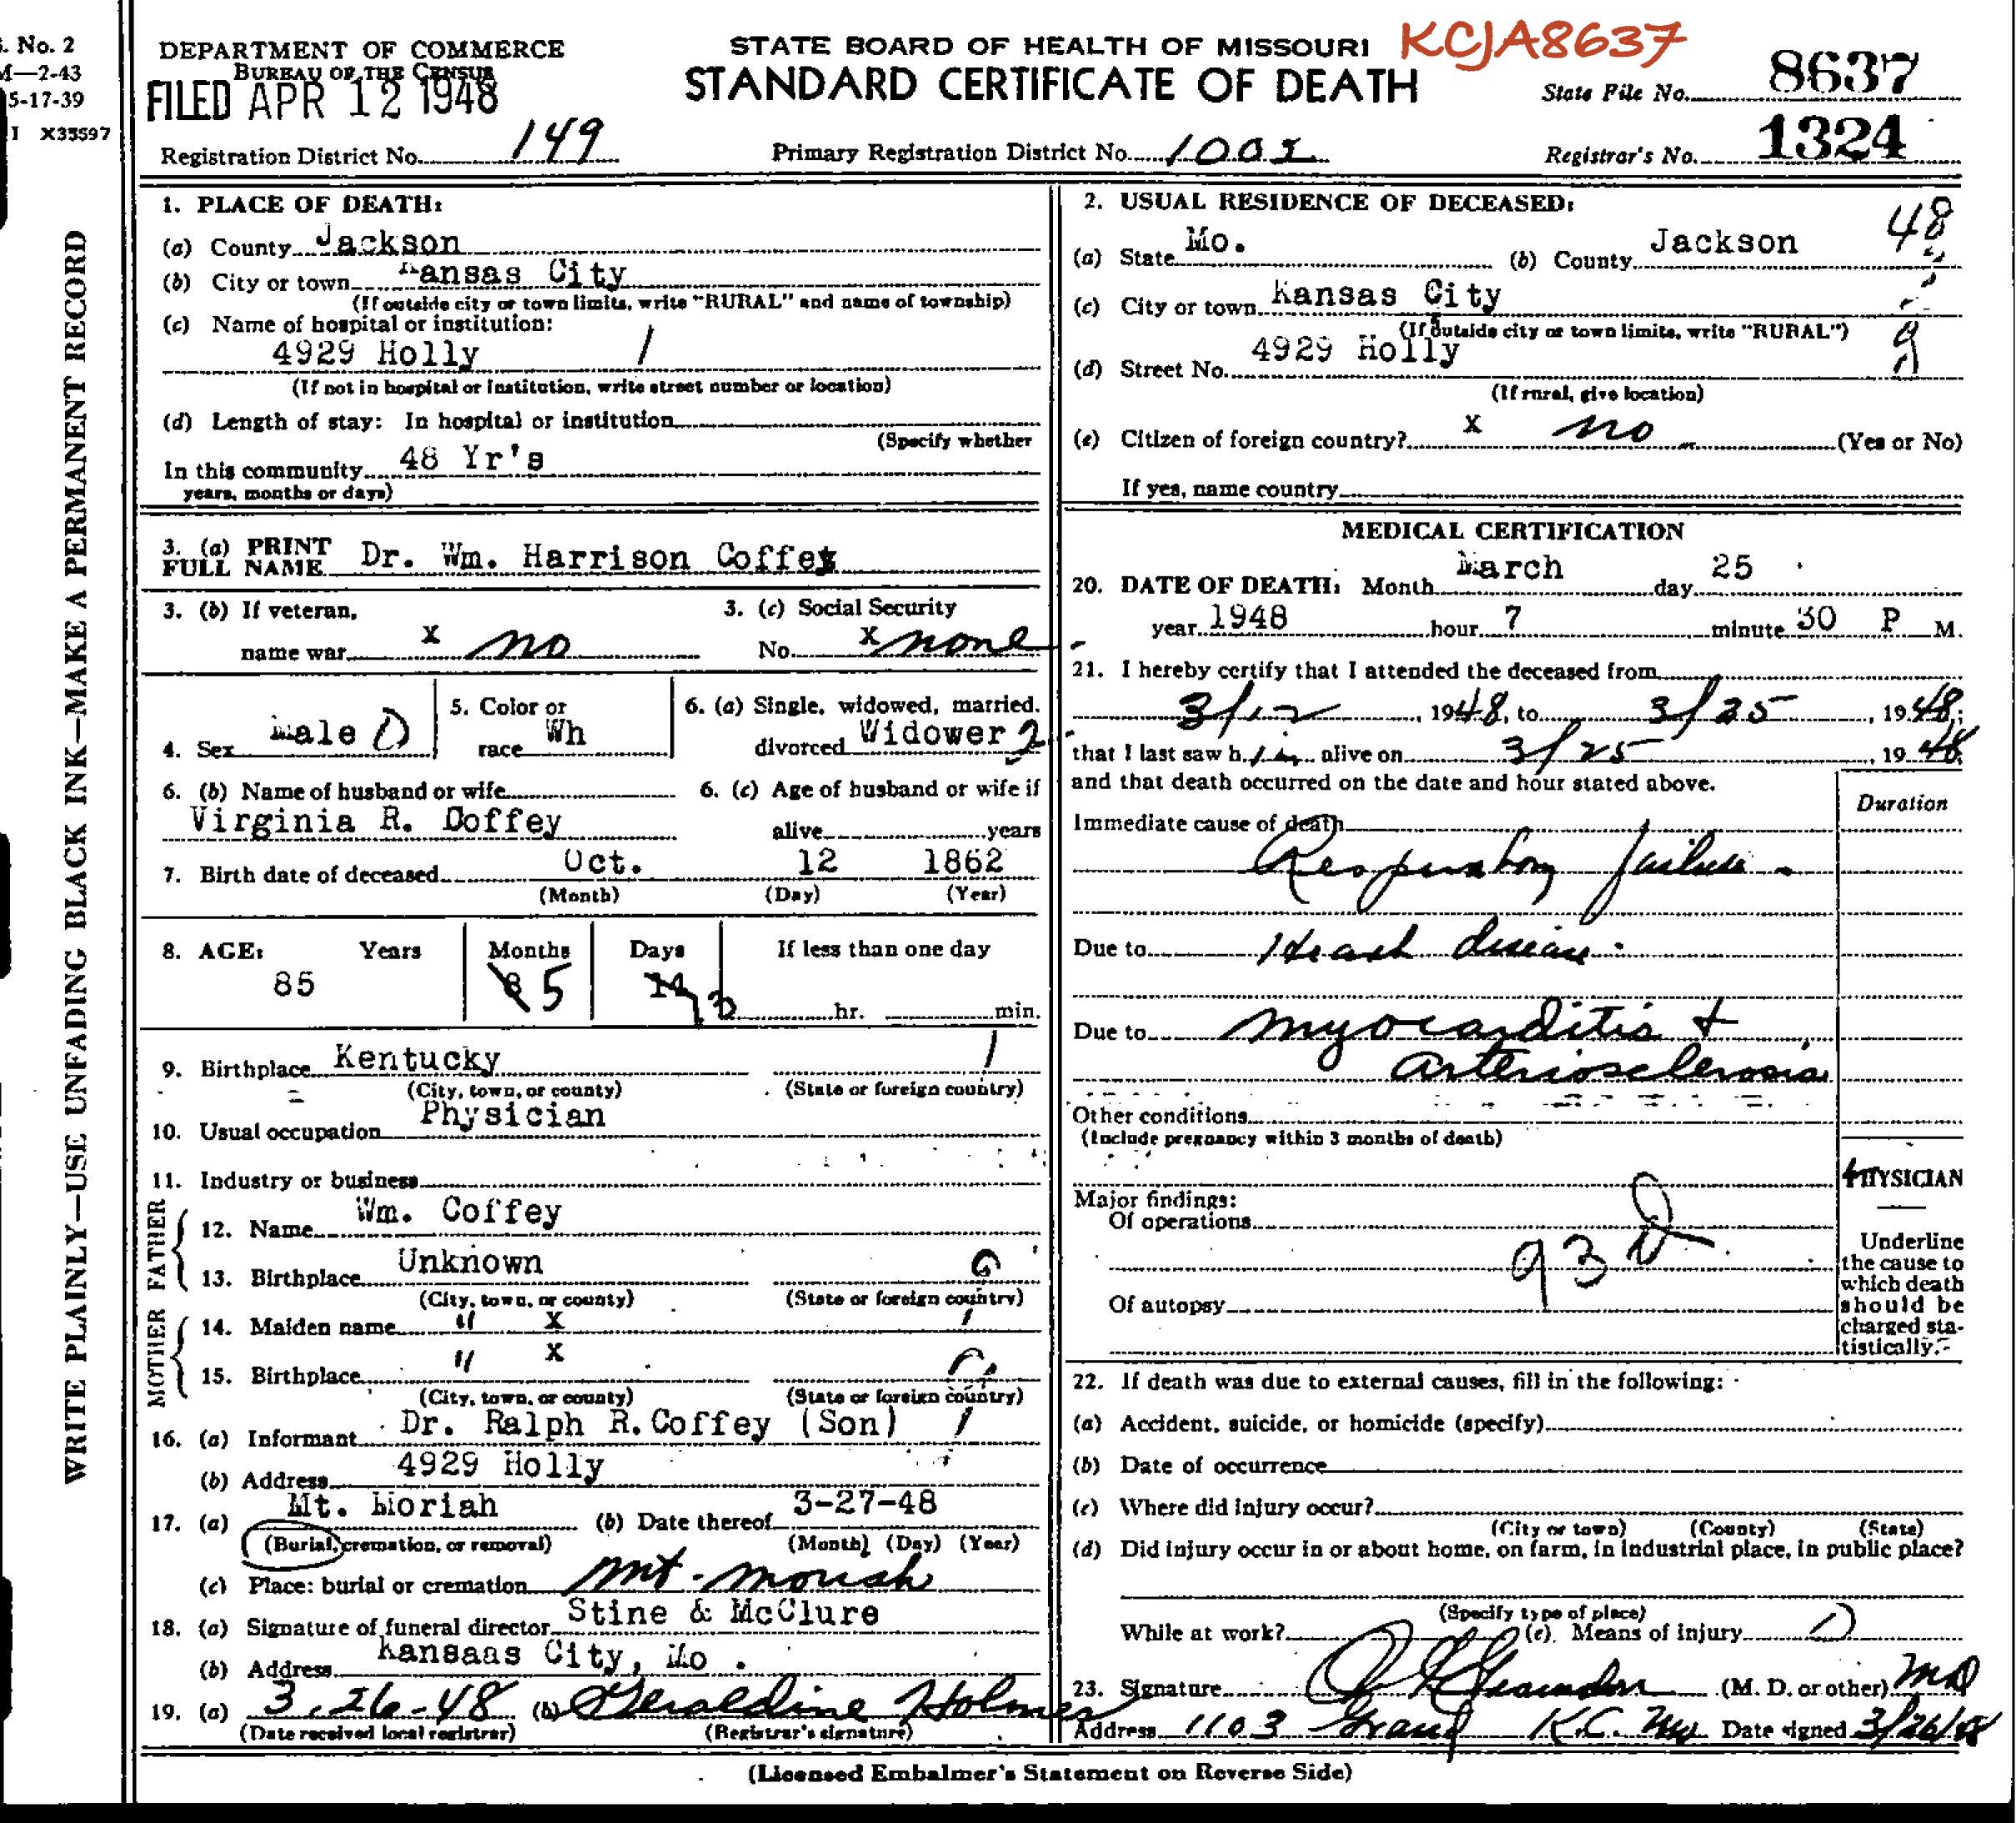 S. No. 2
M—2-43
5-17-39
I X35597
WRITE PLAINLY—USE UNFADING BLACK INK—MAKE A PERMANENT RECORD
DEPARTMENT OF COMMERCE
BUREAU OF THE CENSUS
FILED APR 12 1948
STATE BOARD OF HEALTH OF MISSOURI KCJA8637
STANDARD CERTIFICATE OF DEATH
State File No. 8637
Registration District No. 149
Primary Registration District No. 1002
Registrar's No. 1324
1. PLACE OF DEATH:
(a) County Jackson
(b) City or town Kansas City
(If outside city or town limits, write "RURAL" and name of township)
(c) Name of hospital or institution:
4929 Holly 1
(If not in hospital or institution, write street number or location)
(d) Length of stay: In hospital or institution
(Specify whether
In this community 48 Yr's
years, months or days)
3. (a) PRINT
FULL NAME Dr. Wm. Harrison Coffey
3. (b) If veteran,
name war x no
3. (c) Social Security
No. x none
4. Sex Male
5. Color or
race Wh
6. (a) Single, widowed, married,
divorced Widower 2
6. (b) Name of husband or wife
Virginia R. Doffey
6. (c) Age of husband or wife if
alive years
7. Birth date of deceased Oct. 12 1862
(Month) (Day) (Year)
8. AGE: Years Months Days If less than one day
85 5 13 hr. min.
9. Birthplace Kentucky 1
(City, town, or county) (State or foreign country)
10. Usual occupation Physician
11. Industry or business
FATHER
12. Name Wm. Coffey
13. Birthplace Unknown
(City, town, or county) (State or foreign country)
MOTHER
14. Maiden name " x
15. Birthplace " x
(City, town, or county) (State or foreign country)
16. (a) Informant Dr. Ralph R. Coffey (Son) 1
(b) Address 4929 Holly
17. (a) Mt. Moriah (b) Date thereof 3-27-48
(Burial, cremation, or removal) (Month) (Day) (Year)
(c) Place: burial or cremation Mt. Moriah
18. (a) Signature of funeral director Stine & McClure
(b) Address Kansaas City, Mo.
19. (a) 3-26-48 (b) Geraldine Holmes
(Date received local registrar) (Registrar's signature)
2. USUAL RESIDENCE OF DECEASED:
48
(a) State Mo. (b) County Jackson
(c) City or town Kansas City
(If outside city or town limits, write "RURAL")
(d) Street No. 4929 Holly
(If rural, give location)
(e) Citizen of foreign country? x no (Yes or No)
If yes, name country
MEDICAL CERTIFICATION
20. DATE OF DEATH: Month March day 25
year 1948 hour 7 minute 30 P M.
21. I hereby certify that I attended the deceased from
3/12, 1948, to 3/25, 1948;
that I last saw him alive on 3/25, 1948
and that death occurred on the date and hour stated above.
Duration
Immediate cause of death
Respiratory failure
Due to Heart disease
Due to myocarditis +
arteriosclerosis
Other conditions
(Include pregnancy within 3 months of death)
Major findings:
Of operations
93 D
Of autopsy
PHYSICIAN
Underline
the cause to
which death
should be
charged sta-
tistically.
22. If death was due to external causes, fill in the following:
(a) Accident, suicide, or homicide (specify)
(b) Date of occurrence
(c) Where did injury occur?
(City or town) (County) (State)
(d) Did injury occur in or about home, on farm, in industrial place, in public place?
(Specify type of place)
While at work? (e) Means of injury
23. Signature (M. D. or other) MD
Address 1103 Grand K.C. Mo Date signed 3/26/48
(Licensed Embalmer's Statement on Reverse Side)